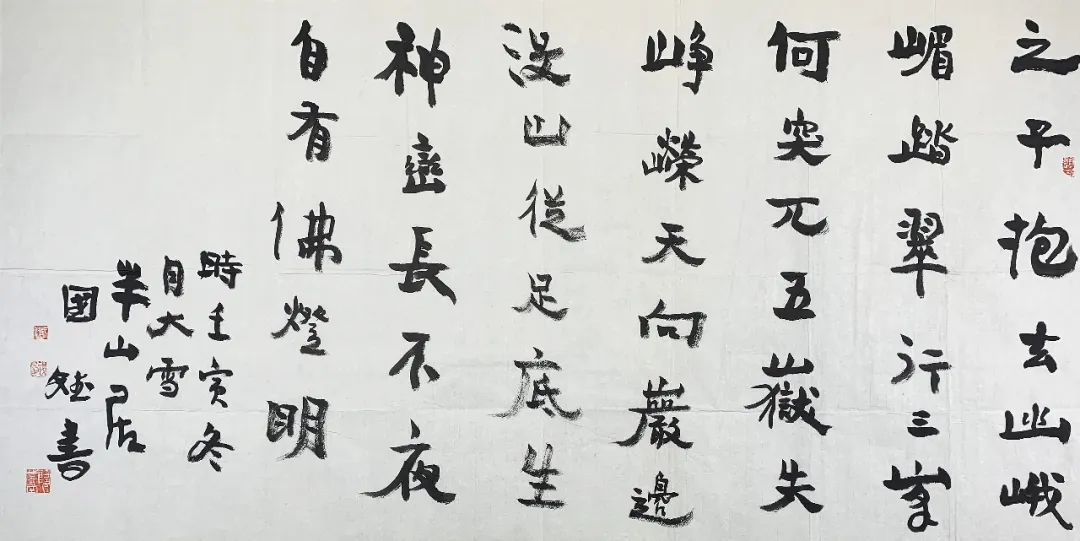 之子抱玄幽峨
嵋踏翠行三峯
何突兀五嶽失
崢嶸天向巖邊
沒山從足底生
神巒長不夜
自有佛燈明
時壬寅冬
月大雪
羊山居
國書